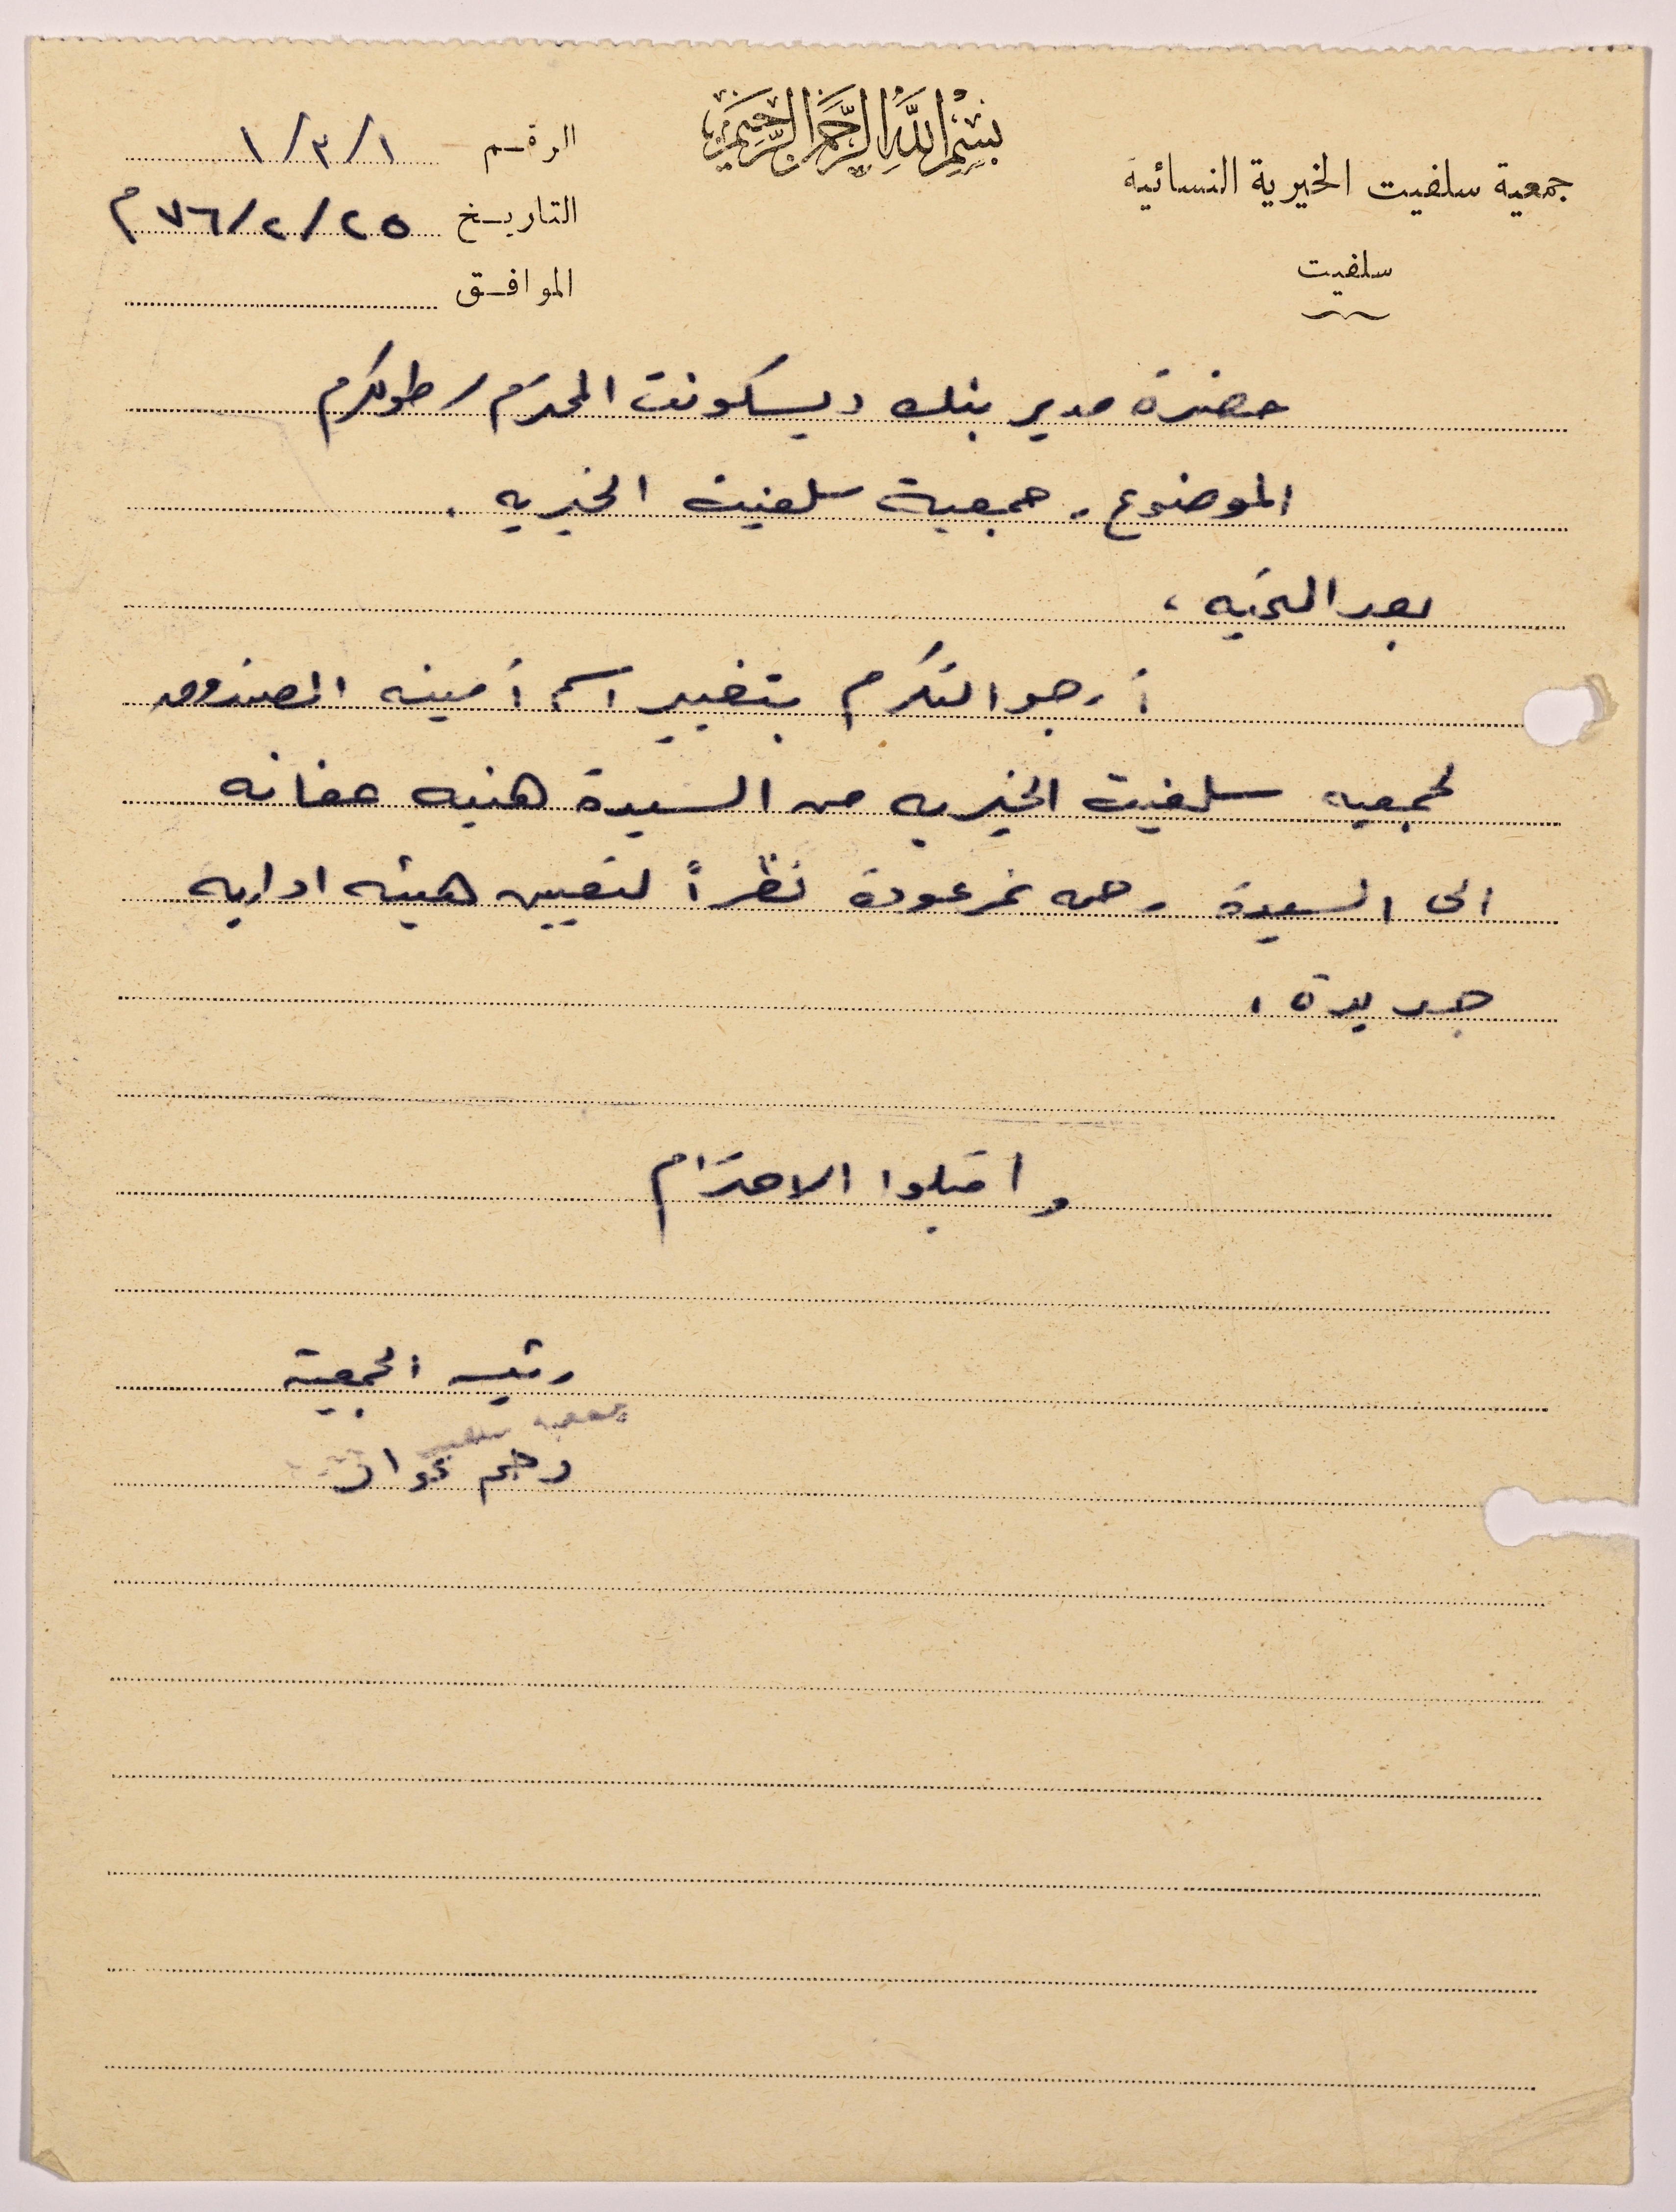 بسم الله الرحمن الرحيم
جمعية سلفيت الخيرية النسائية
سلفيت
الرقم ١/٣/١
التاريخ ٢٥/٢/٧٦ م
الموافق
حضرة مدير بنك ديسكونت المحترم / طولكرم
الموضوع . جمعية سلفيت الخيريه .
بعد التحيه ،
أرجو التكرم بتغيير اسم أمينه الصندوق
لجمعيه سلفيت الخيريه من السيدة هنيه عفانه
الى السيدة رحمه نمر عودة نظراً لتعيين هيئه اداريه
جديدة .
واقبلوا الاحترام
رئيسه الجمعية
جمعية سلفيت